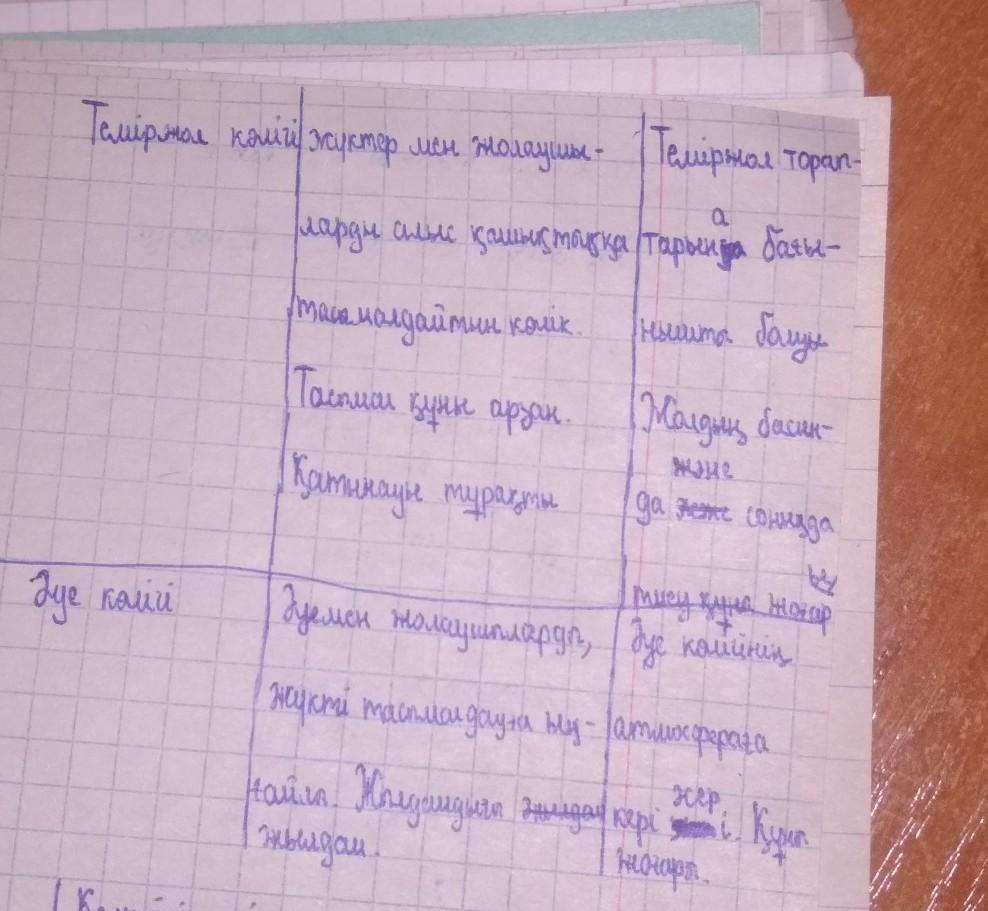 Теміржол көлігі
жүктер мен жолаушы-
ларды алыс қашықтыққа
тасымалдайтын көлік.
Тасымал құны арзан.
Қатынауы тұрақты
Теміржол торап-
тарына бағы-
нышта болуы
Жолдың басын-
да және соңында
тиеу құны жоғар
ы
Әуе көлігі
Әуемен жолаушыларды,
жүкті тасымалдауға ың-
ғайлы. Жылдамдығы жылдам
жылдам.
Әуе көлігінің
атмосфераға
кері әсері. Құны
жоғары.